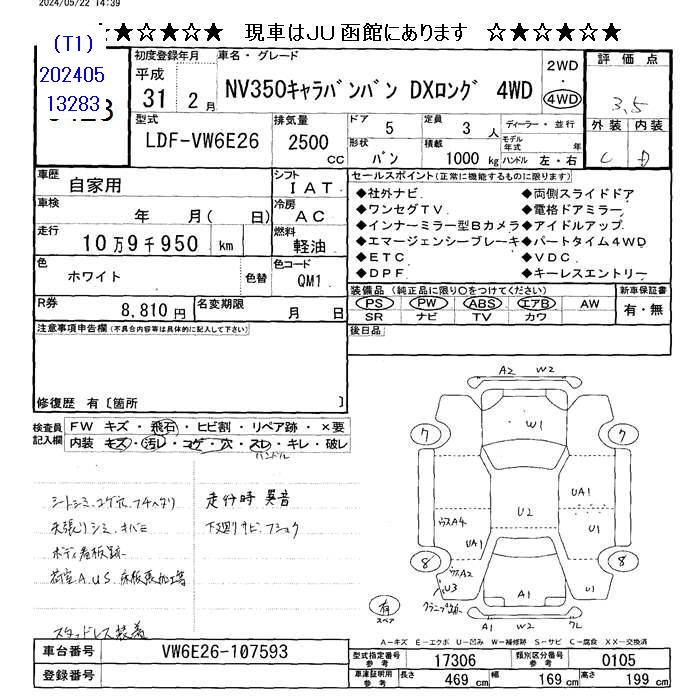 2024/05/22 14:39
★☆★☆★☆ 現車はJU函館にあります ☆★☆★☆★
(T1)
202405
13283
初度登録年月
平成
31 2月
車名・グレード
NV350キャラバンバン DXロング 4WD
2WD
・
4WD
評価点
3.5
外装 内装
C D
型式
LDF-VW6E26
排気量
2500
CC
ドア 5
定員 3 人
ディーラー・並行
モデル年式 年
形状 バン
積載 1000 kg
ハンドル 左・右
車歴 自家用
シフト IAT
車検 年 月( 日)
冷房 AC
走行 10万9千950 km
燃料 軽油
色 ホワイト 色替
色コード QM1
R券 8,810円
名変期限 月 日
セールスポイント(正常に機能するものに限ります)
◆社外ナビ
◆ワンセグTV
◆インナーミラー型Bカメラ
◆エマージェンシーブレーキ
◆ETC
◆DPF
◆両側スライドドア
◆電格ドアミラー
◆アイドルアップ
◆パートタイム4WD
◆VDC
◆キーレスエントリー
装備品(純正品に限り○をつけてください)
PS PW ABS エアB AW
SR ナビ TV カワ
新車保証書
有・無
注意事項申告欄(不具合内容等は具体的に記入して下さい)
後日品
修復歴 有〔箇所 〕
検査員記入欄
FW キズ・飛石・ヒビ割・リペア跡・×要
内装 キズ・汚レ・コゲ・穴・スレ・キレ・破レ
ハンドル
シートシミ、コゲ穴、フチヘタリ
天張りシミ、
ボディ看板跡
荷室A.U.S.床板張加工等
スタッドレス装着
走行時 異音
下廻りサビ、フショク
A2 W2
W1
7
7
UA1
U2
ウスA4
UA1
U1
8
8
ウスA2
U3
A1
U1
有
スペア
A1 W2
A-キズ E-エクボ U-凹み W-補修跡 S-サビ C-腐食 XX-交換済
車台番号 VW6E26-107593
登録番号
型式指定番号 参考 17306
類別区分番号 参考 0105
車庫証明用 参考
長さ 469 cm
幅 169 cm
高さ 199 cm